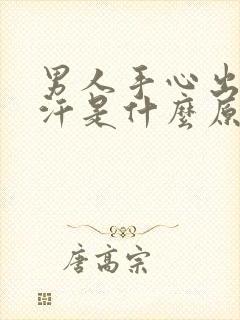 男人手心出
汗是什麼原
唐高宗